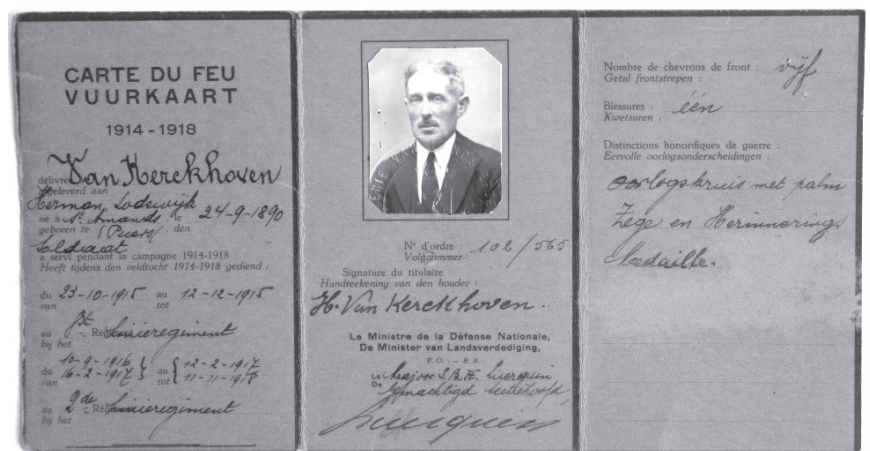 CARTE DU FEU
VUURKAART
1914-1918
délivrée
Van Kerckhoven
afgeleverd aan
Herman, Lodewijk
né à St. Amands, le 24-9-1890
geboren te (Puers) den
Soldaat
a servi pendant la campagne 1914-1918 :
Heeft tijdens den veldtocht 1914-1918 gediend :
du 23-10-1915 au 12-12-1915
van tot
au Linieregiment
bij het
10-9-1916 12-2-1917
du 16-2-1917 au 11-11-1918
van tot
au 2de Linieregiment
bij het
N° d'ordre : 102/565
Volgnummer :
Signature du titulaire :
Handteekening van den houder :
H. Van Kerckhoven.
Le Ministre de la Défense Nationale,
De Minister van Landsverdediging,
P. O. : - B. B. :
Le Majoor S.B.H.
De Gemachtigd
Nombre de chevrons de front : vijf
Getal frontstrepen :
Blessures : één
Kwetsuren :
Distinctions honorifiques de guerre :
Eervolle oorlogsonderscheidingen :
Oorlogskruis met palm
Zege en Herinnerings
Medaille.